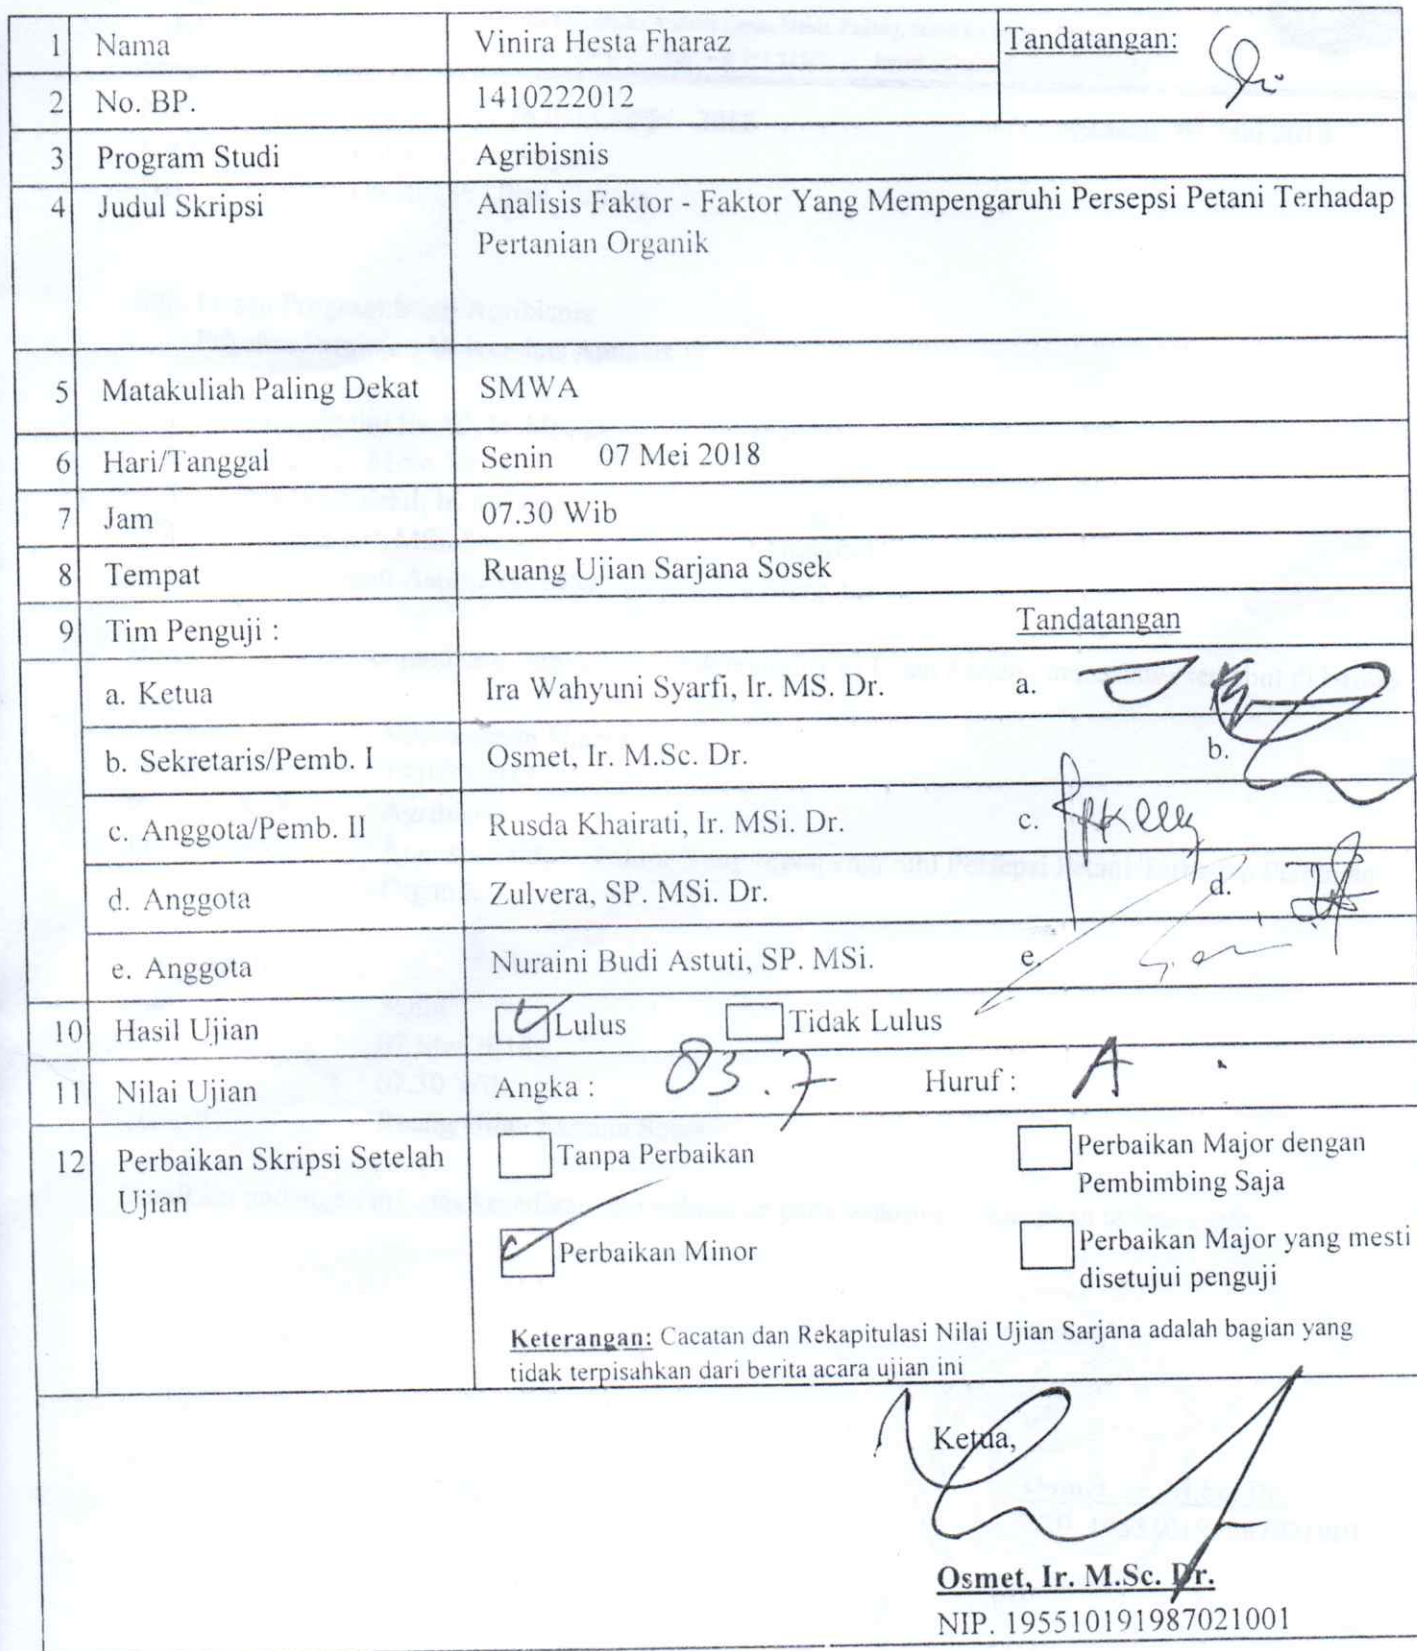 1 Nama Vinira Hesta Fharaz Tandatangan:
2 No. BP. 1410222012
3 Program Studi Agribisnis
4 Judul Skripsi Analisis Faktor - Faktor Yang Mempengaruhi Persepsi Petani Terhadap
Pertanian Organik
5 Matakuliah Paling Dekat SMWA
6 Hari/Tanggal Senin 07 Mei 2018
7 Jam 07.30 Wib
8 Tempat Ruang Ujian Sarjana Sosek
9 Tim Penguji : Tandatangan
a. Ketua Ira Wahyuni Syarfi, Ir. MS. Dr. a.
b. Sekretaris/Pemb. I Osmet, Ir. M.Sc. Dr. b.
c. Anggota/Pemb. II Rusda Khairati, Ir. MSi. Dr. c.
d. Anggota Zulvera, SP. MSi. Dr. d.
e. Anggota Nuraini Budi Astuti, SP. MSi. e.
10 Hasil Ujian Lulus Tidak Lulus
11 Nilai Ujian Angka : 83.7 Huruf : A
12 Perbaikan Skripsi Setelah Tanpa Perbaikan Perbaikan Major dengan
Ujian Pembimbing Saja
Perbaikan Minor Perbaikan Major yang mesti
disetujui penguji
Keterangan: Cacatan dan Rekapitulasi Nilai Ujian Sarjana adalah bagian yang
tidak terpisahkan dari berita acara ujian ini
Ketua,
Osmet, Ir. M.Sc. Dr.
NIP. 195510191987021001